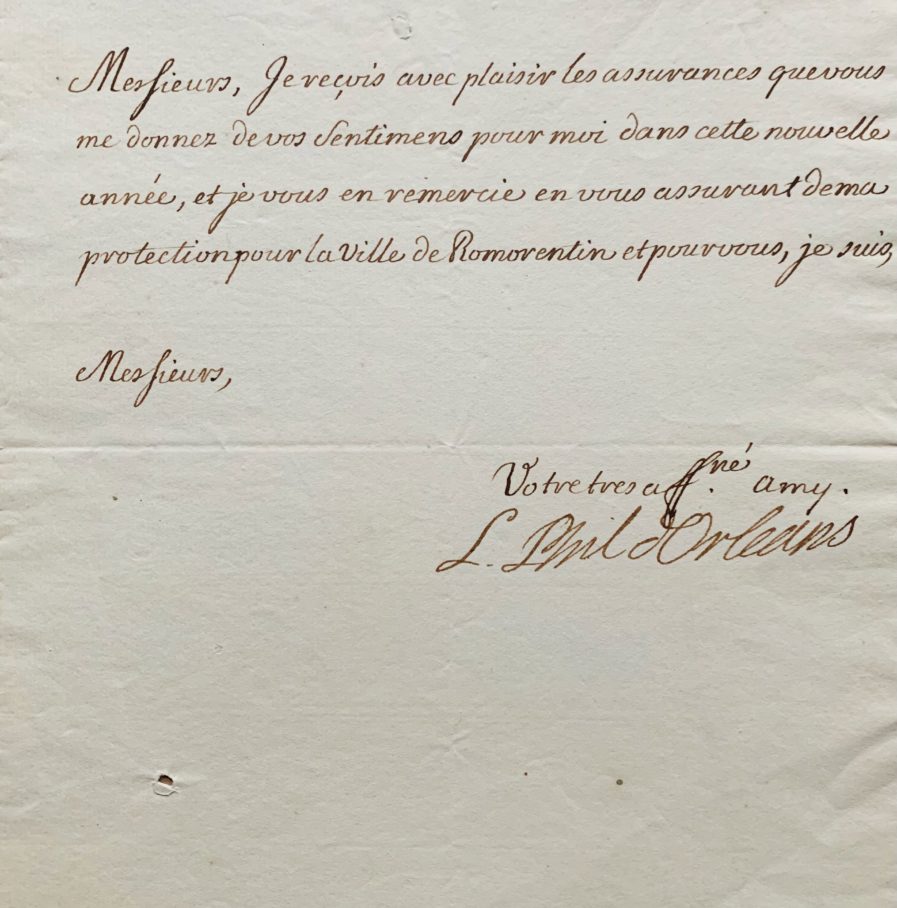 Messieurs, Je reçois avec plaisir les assurances que vous
me donnez de vos Sentimens pour moi dans cette nouvelle
année, et je vous en remercie en vous assurant de ma
protection pour la Ville de Romorentin et pour vous, je suis,
Messieurs,
Votre tres aff.né amy.
L. Phil d'Orleans